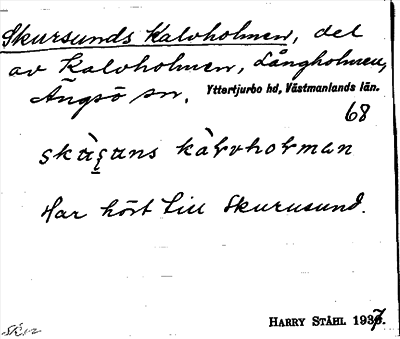 Skursunds Kalvholmen, del
av Kalvholmen, Långholmen,
Ängsö sn. Yttertjurbo hd, Västmanlands län.
68
skùṣuns kàlvholman
Har hört till Skurusund.
HARRY STÅHL 1937.